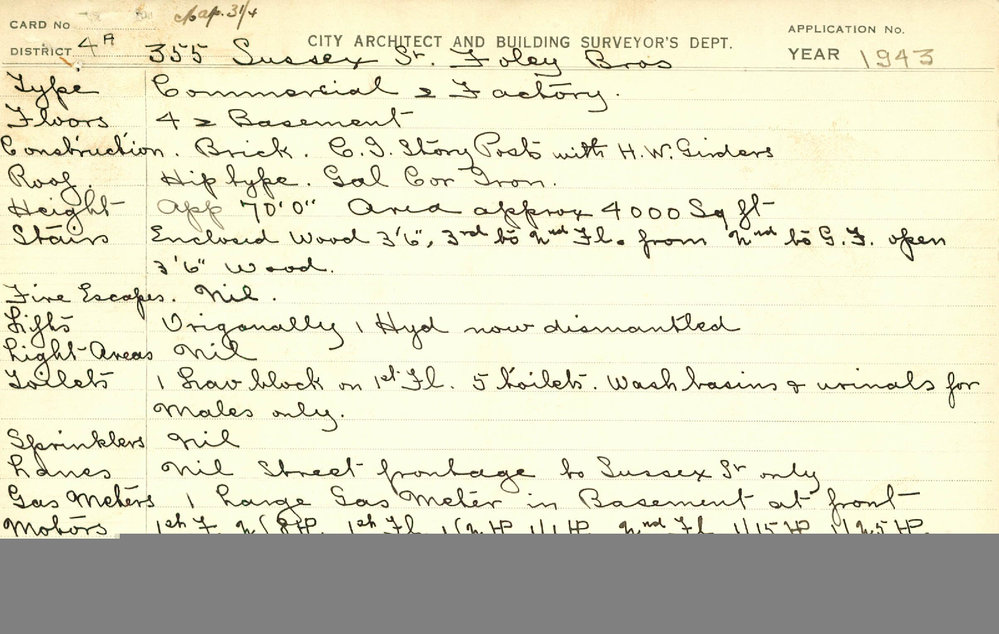 CARD No Map. 31/4
CITY ARCHITECT AND BUILDING SURVEYOR'S DEPT.
APPLICATION No.
DISTRICT 4A
YEAR 1943
355 Sussex St. Foley Bros
Type Commercial & Factory.
Floors 4 & Basement
Construction. Brick. C.I. Story Posts with H.W. Girders
Roof. Hip type. Gal Cor Iron.
Height App 70'0" Area approx 4000 Sq ft
Stairs Enclosed Wood 3'6", 3rd to 2nd Fl. from 2nd to G.F. open
3'6" Wood.
Fire Escapes. Nil.
Lifts Origonally 1 Hyd now dismantled
Light Areas Nil
Toilets 1 Lav block on 1st Fl. 5 toilets. Wash basins & urinals for
Males only.
Sprinklers Nil
Lanes Nil Street frontage to Sussex St only
Gas Meters 1 Large Gas Meter in Basement at front
Motors 1st Fl 1/1 HP 2nd Fl 1/15 HP